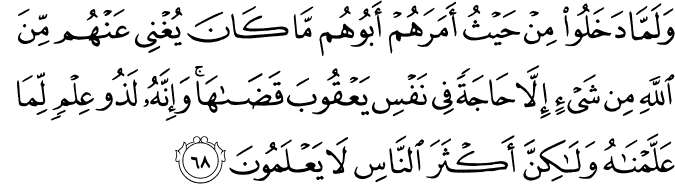 وَلَمَّا دَخَلُوا۟ مِنْ حَيْثُ أَمَرَهُمْ أَبُوهُم مَّا كَانَ يُغْنِى عَنْهُم مِّنَ
ٱللَّهِ مِن شَىْءٍ إِلَّا حَاجَةً فِى نَفْسِ يَعْقُوبَ قَضَىٰهَا ۚ وَإِنَّهُۥ لَذُو عِلْمٍ لِّمَا
عَلَّمْنَـٰهُ وَلَـٰكِنَّ أَكْثَرَ ٱلنَّاسِ لَا يَعْلَمُونَ ٦٨